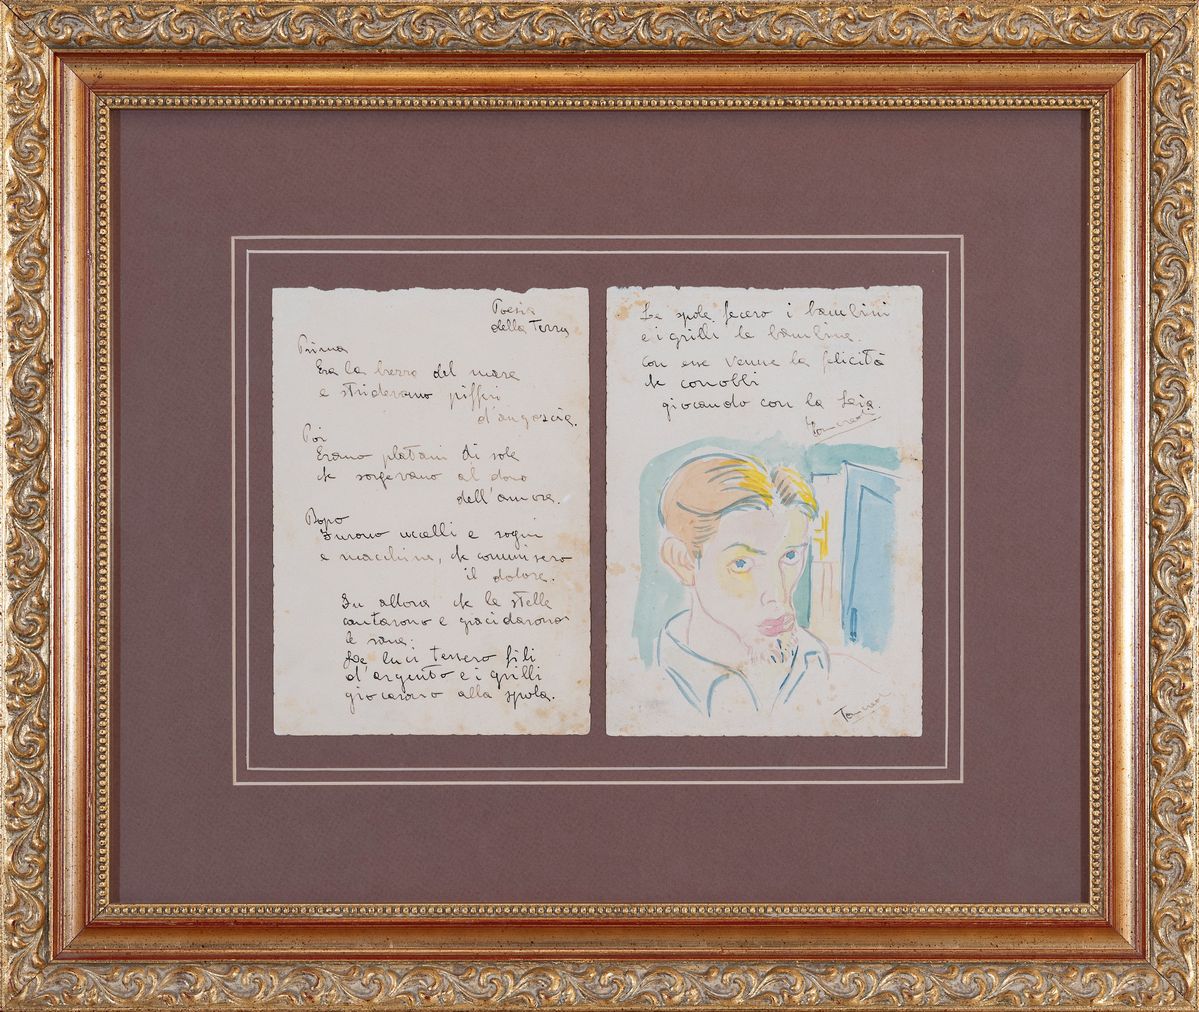 Poesia
della Terra
Prima
Era la brezza del mare
e stridevano pifferi
d'angoscia.
Poi
Erano platani di sole
ch sorgevano al dono
dell'amore.
Dopo
Furono uccelli e sogni
e macchine, ch commisero
il dolore.
Fu allora ch le stelle
cantarono e gracidarono
le rane.
Le luci tessero fili
d'argento e i grilli
giocarono alla spola.
Le spole fecero i bambini
e i grilli le bambine.
con esse venne la felicità
ch conobbi
giocando con la
Tancredi
Tancredi